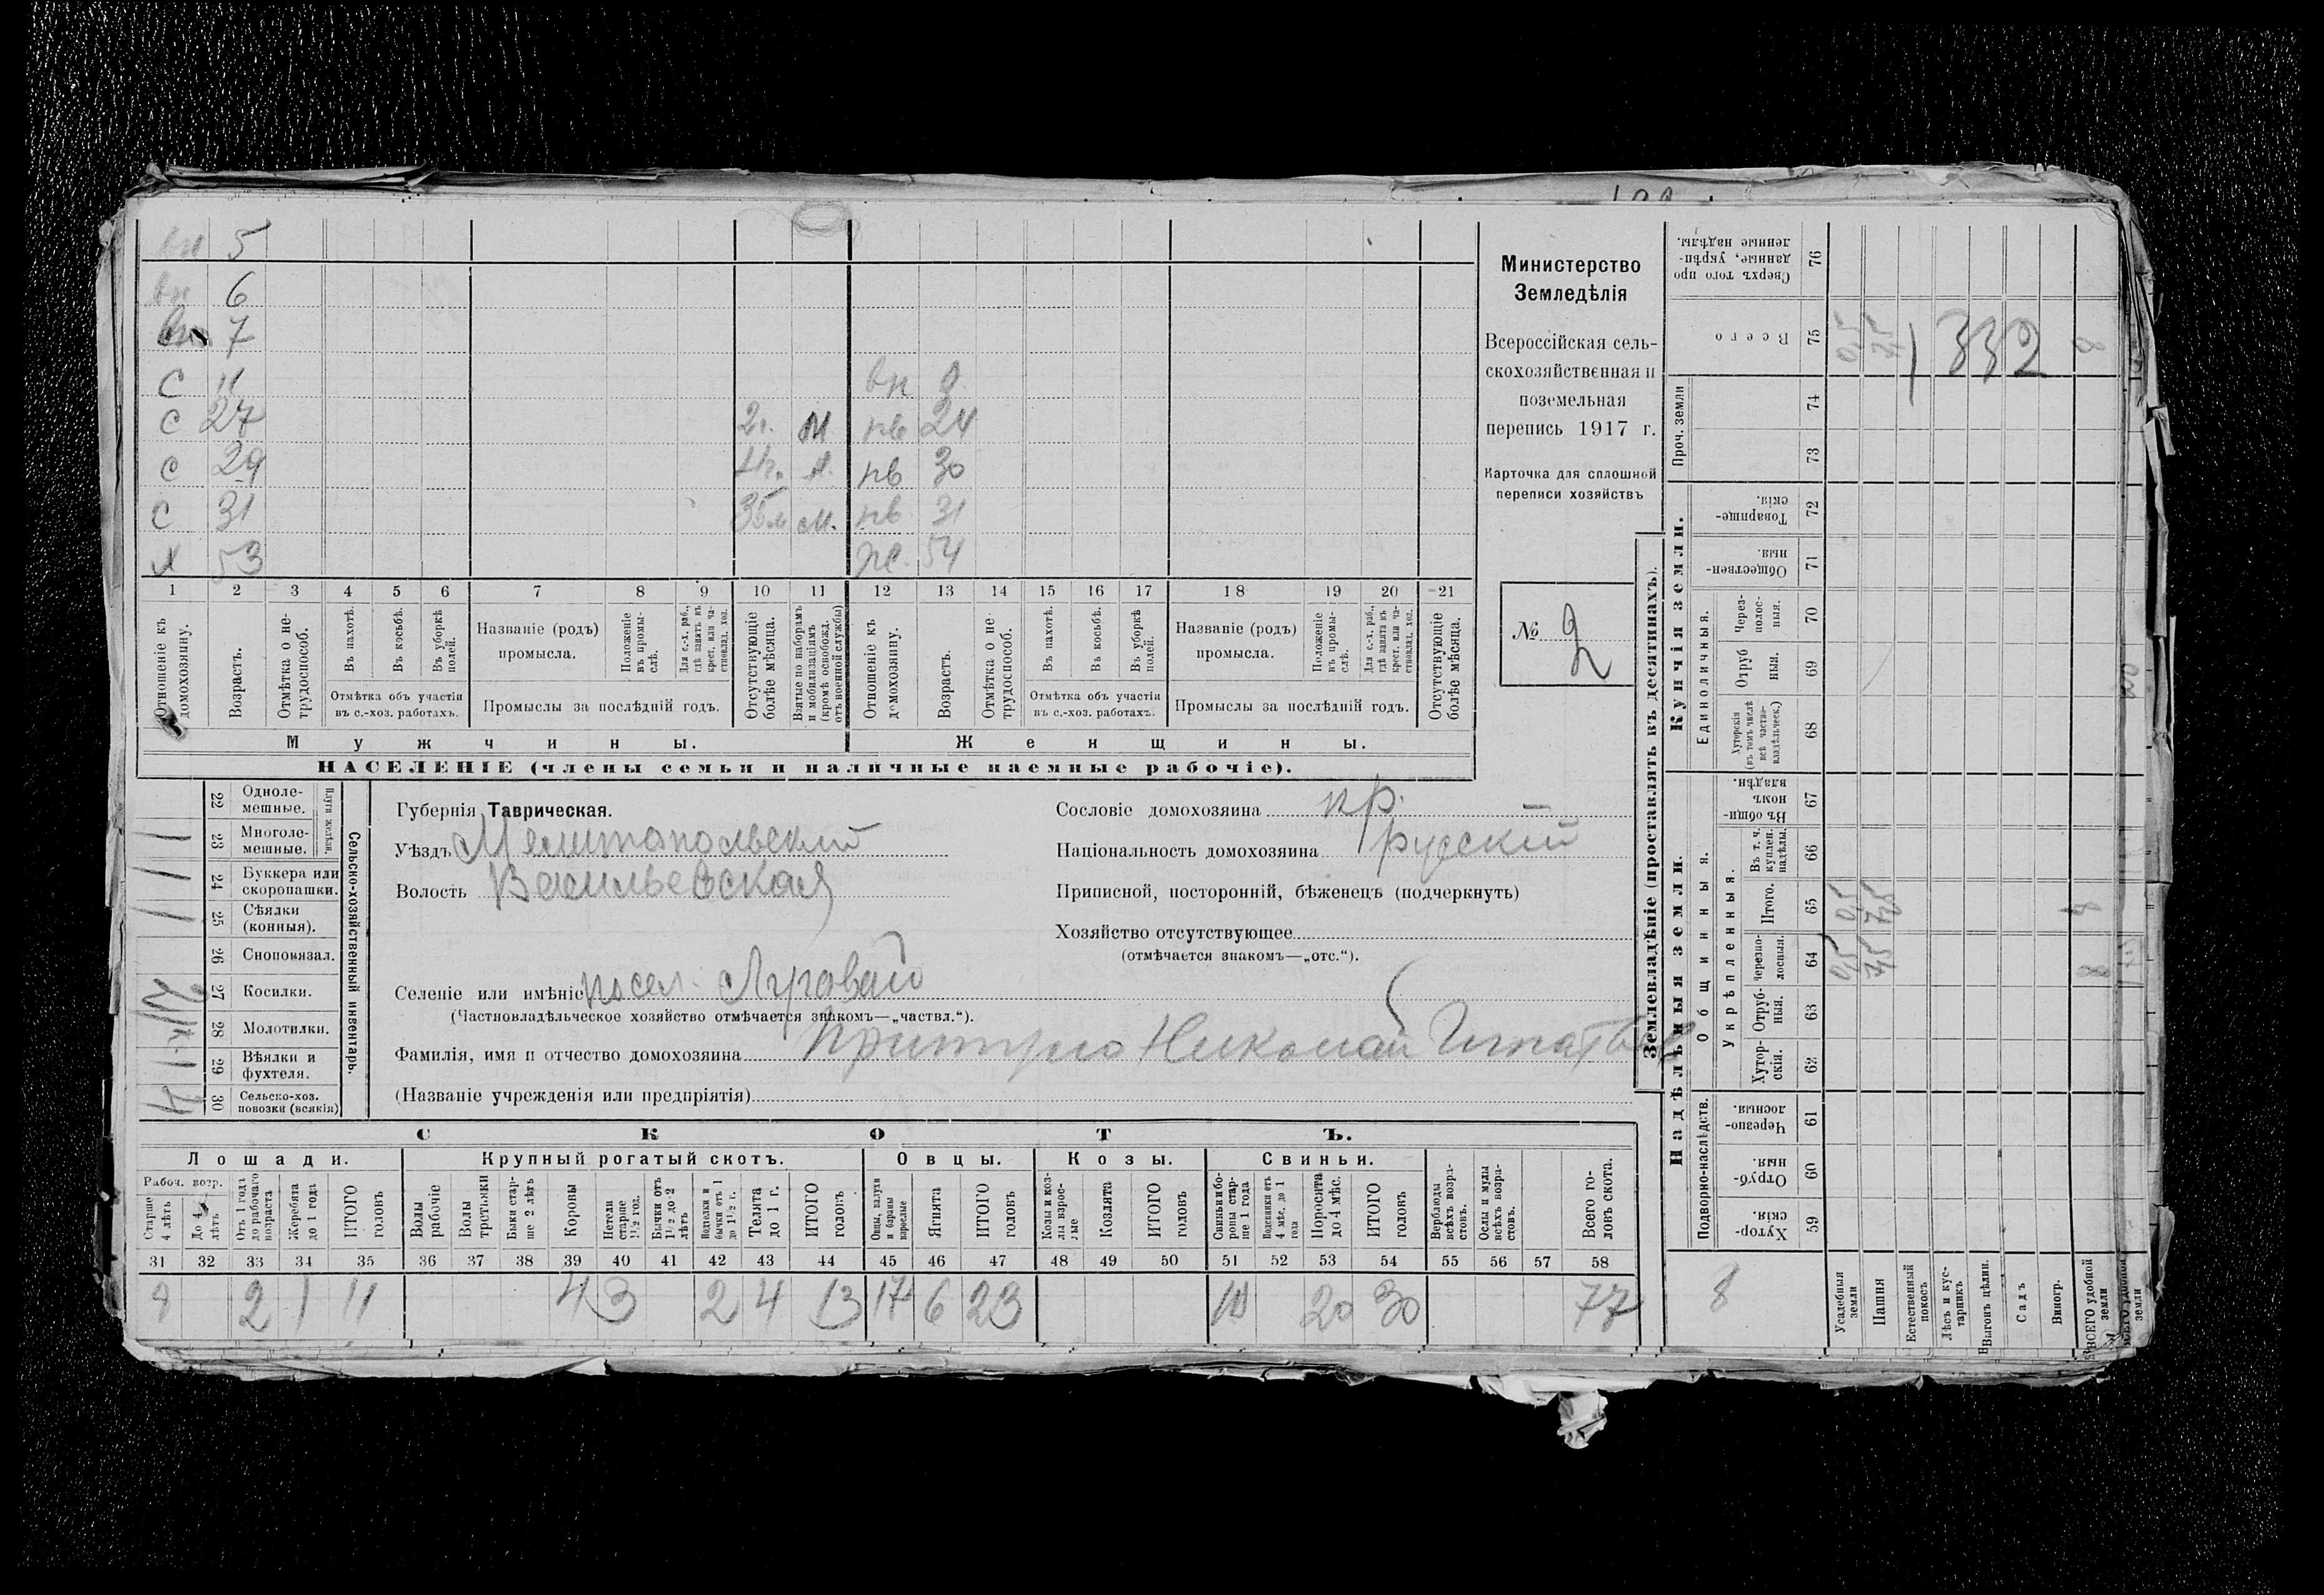 вн 5
вн 6
вн 7
С 11 вн
С 27 2г. М нв 24
С 29 4г. М. нв 30
С 31 м. нв 31
Х 53 же. 54
1 2 3 4 5 6 7 8 9 10 11 12 13 14 15 16 17 18 19 20 21
Отношеніе къ домохозяину.
Возрастъ.
Отмѣтка о нетрудоспособ.
Въ пахотѣ.
Въ косьбѣ.
Въ уборкѣ полей.
Отмѣтка объ участіи въ с.-хоз. работахъ.
Названіе (родъ) промысла.
Положеніе въ промыслѣ.
Для с.-х. раб., гдѣ занятъ въ крест. или частновлад. хоз.
Промыслы за послѣдній годъ.
Отсутствующіе болѣе мѣсяца.
Взятые по наборамъ и мобилизаціямъ (кромѣ освобожд. отъ военной службы)
Отношеніе къ домохозяину.
Возрастъ.
Отмѣтка о нетрудоспособ.
Въ пахотѣ.
Въ косьбѣ.
Въ уборкѣ полей.
Отмѣтка объ участіи въ с.-хоз. работахъ.
Названіе (родъ) промысла.
Положеніе въ промыслѣ.
Для с.-х. раб., гдѣ занята въ крест. или частновлад. хоз.
Промыслы за послѣдній годъ.
Отсутствующіе болѣе мѣсяца.
Мужчины. Женщины.
НАСЕЛЕНІЕ (члены семьи и наличные наемные рабочіе).
Министерство
Земледѣлія
Всероссійская сель-
скохозяйственная и
поземельная
перепись 1917 г.
Карточка для сплошной
переписи хозяйствъ
№ 2
Сельско-хозяйственный инвентарь.
Плуги желѣзн.
22 Одноле-
мешные.
23 Многоле-
мешные.
24 Буккера или
скоропашки.
25 Сѣялки
(конныя).
26 Сноповязал.
27 Косилки.
28 Молотилки.
29 Вѣялки и
фухтеля.
30 Сельско-хоз.
повозки (всякія)
Губернія Таврическая.
Уѣздъ Мелитопольский
Волость Васильевская
Селеніе или имѣніе посел. Луговай
(Частновладѣльческое хозяйство отмѣчается знакомъ—„частвл.“).
Фамилія, имя и отчество домохозяина Притуло Николай
(Названіе учрежденія или предпріятія)
Сословіе домохозяина кр.
Національность домохозяина русский
Приписной, посторонній, бѣженецъ (подчеркнуть)
Хозяйство отсутствующее
(отмѣчается знакомъ—„отс.“).
СКОТЪ.
Лошади. Крупный рогатый скотъ. Овцы. Козы. Свиньи.
Рабоч. возр.
Старше 4 лѣтъ
До 4 лѣтъ
Отъ 1 года до рабочаго возраста
Жеребята до 1 года
ИТОГО головъ
Волы рабочіе
Волы третьяки
Быки старше 2 лѣтъ
Коровы
Нетели старше 1 1/2 год.
Бычки отъ 1 1/2 до 2 лѣтъ
Телята до 1 г.
ИТОГО головъ
Овцы, валухи и бараны взрослые
Ягнята
ИТОГО головъ
Козы и козлы взрослые
Козлята
ИТОГО головъ
Свиньи и боровы старше 1 года
Подсвинки отъ 4 мѣс. до 1 года
Поросята до 4 мѣс.
ИТОГО головъ
Верблюды всѣхъ возрастовъ.
Ослы и мулы всѣхъ возрастовъ.
Всего головъ скота.
31 32 33 34 35 36 37 38 39 40 41 42 43 44 45 46 47 48 49 50 51 52 53 54 55 56 57 58
2 1 11 4 3 2 4 13 17 6 23 10 20 30 77
Землевладѣніе (проставлять въ десятинахъ).
Надѣльныя земли. Купчія земли.
Подворно-наслѣдств.
Общинныя.
Укрѣпленныя.
Единоличныя.
Проч. земли
59 Хутор-
скія.
60 Отруб-
ныя.
61 Черезпо-
лосныя.
62 Хутор-
скія.
63 Отруб-
ныя.
64 Черезпо-
лосныя. 0,5 7,5 8
65 Итого. 0,5 7,5 8
66 Въ т. ч.
куплен.
надѣлы.
67 Въ общи-
номъ
владѣн.
68 Хуторскія
(въ томъ числѣ
всѣ частно-
владѣльческ.)
69 Отруб
ныя.
70 Через-
полос-
ныя.
71 Обществен-
ныя.
72 Товарище-
скія.
73
74
75 Всего 0,5 7,5 332 8
76 Сверхъ того про
данные, укрѣп-
ленные надѣлы.
8
Усадебныя земли
Пашня
Естественный покосъ
Лѣсъ и кустарникъ
Выгонъ цѣлин.
Садъ
Виногр.
ВСЕГО удобной земли